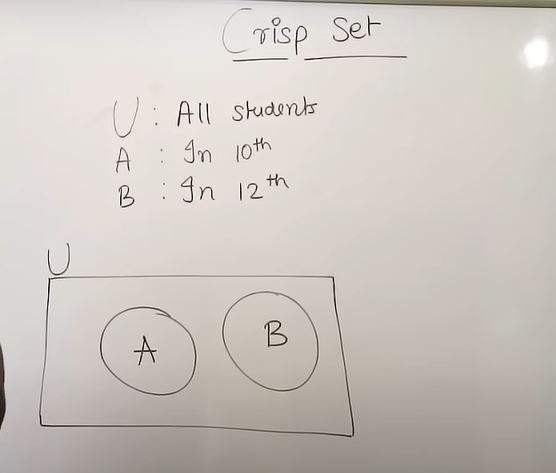 Crisp Set
U : All students
A : In 10th
B : In 12th
U
A
B